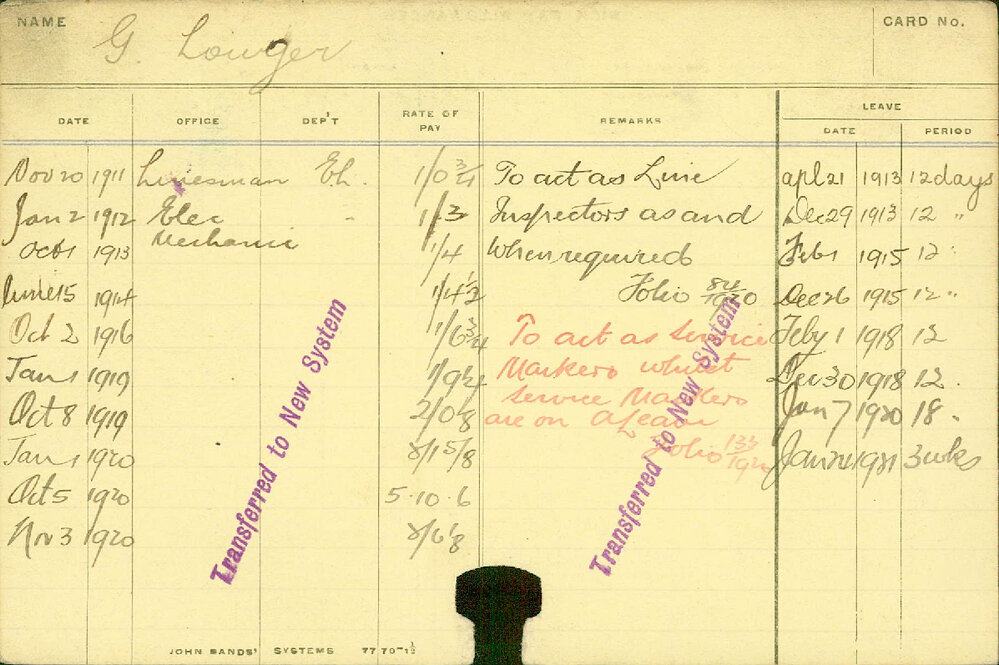 NAME G. Louger CARD No.
DATE OFFICE DEP'T RATE OF PAY REMARKS LEAVE
DATE PERIOD
Nov 20 1911 Linesman El. 1/0 3/4 To act as Line apl 21 1913 12 days
Jan 2 1912 Elec " 1/3 Inspectors as and Dec 29 1913 12 "
Mechanic
Oct 1 1913 1/4 When required Feb 1 1915 12 "
June 15 1914 1/4 1/2 Folio 84/1920 Dec 26 1915 12 "
Oct 2 1916 1/6 3/4 To act as Service Feby 1 1918 12
Jan 1 1919 Markers whilst Dec 30 1918 12 "
Oct 8 1919 2/0 8 Service Markers Jan 7 1920 18 "
are on A Leave
Jan 1 1920 Folio 133/192 Jan 24 1921 3 wks
Oct 5 1920 5.10.6
Nov 3 1920
Transferred to New System
Transferred to New System
JOHN SANDS' SYSTEMS 77 70-12